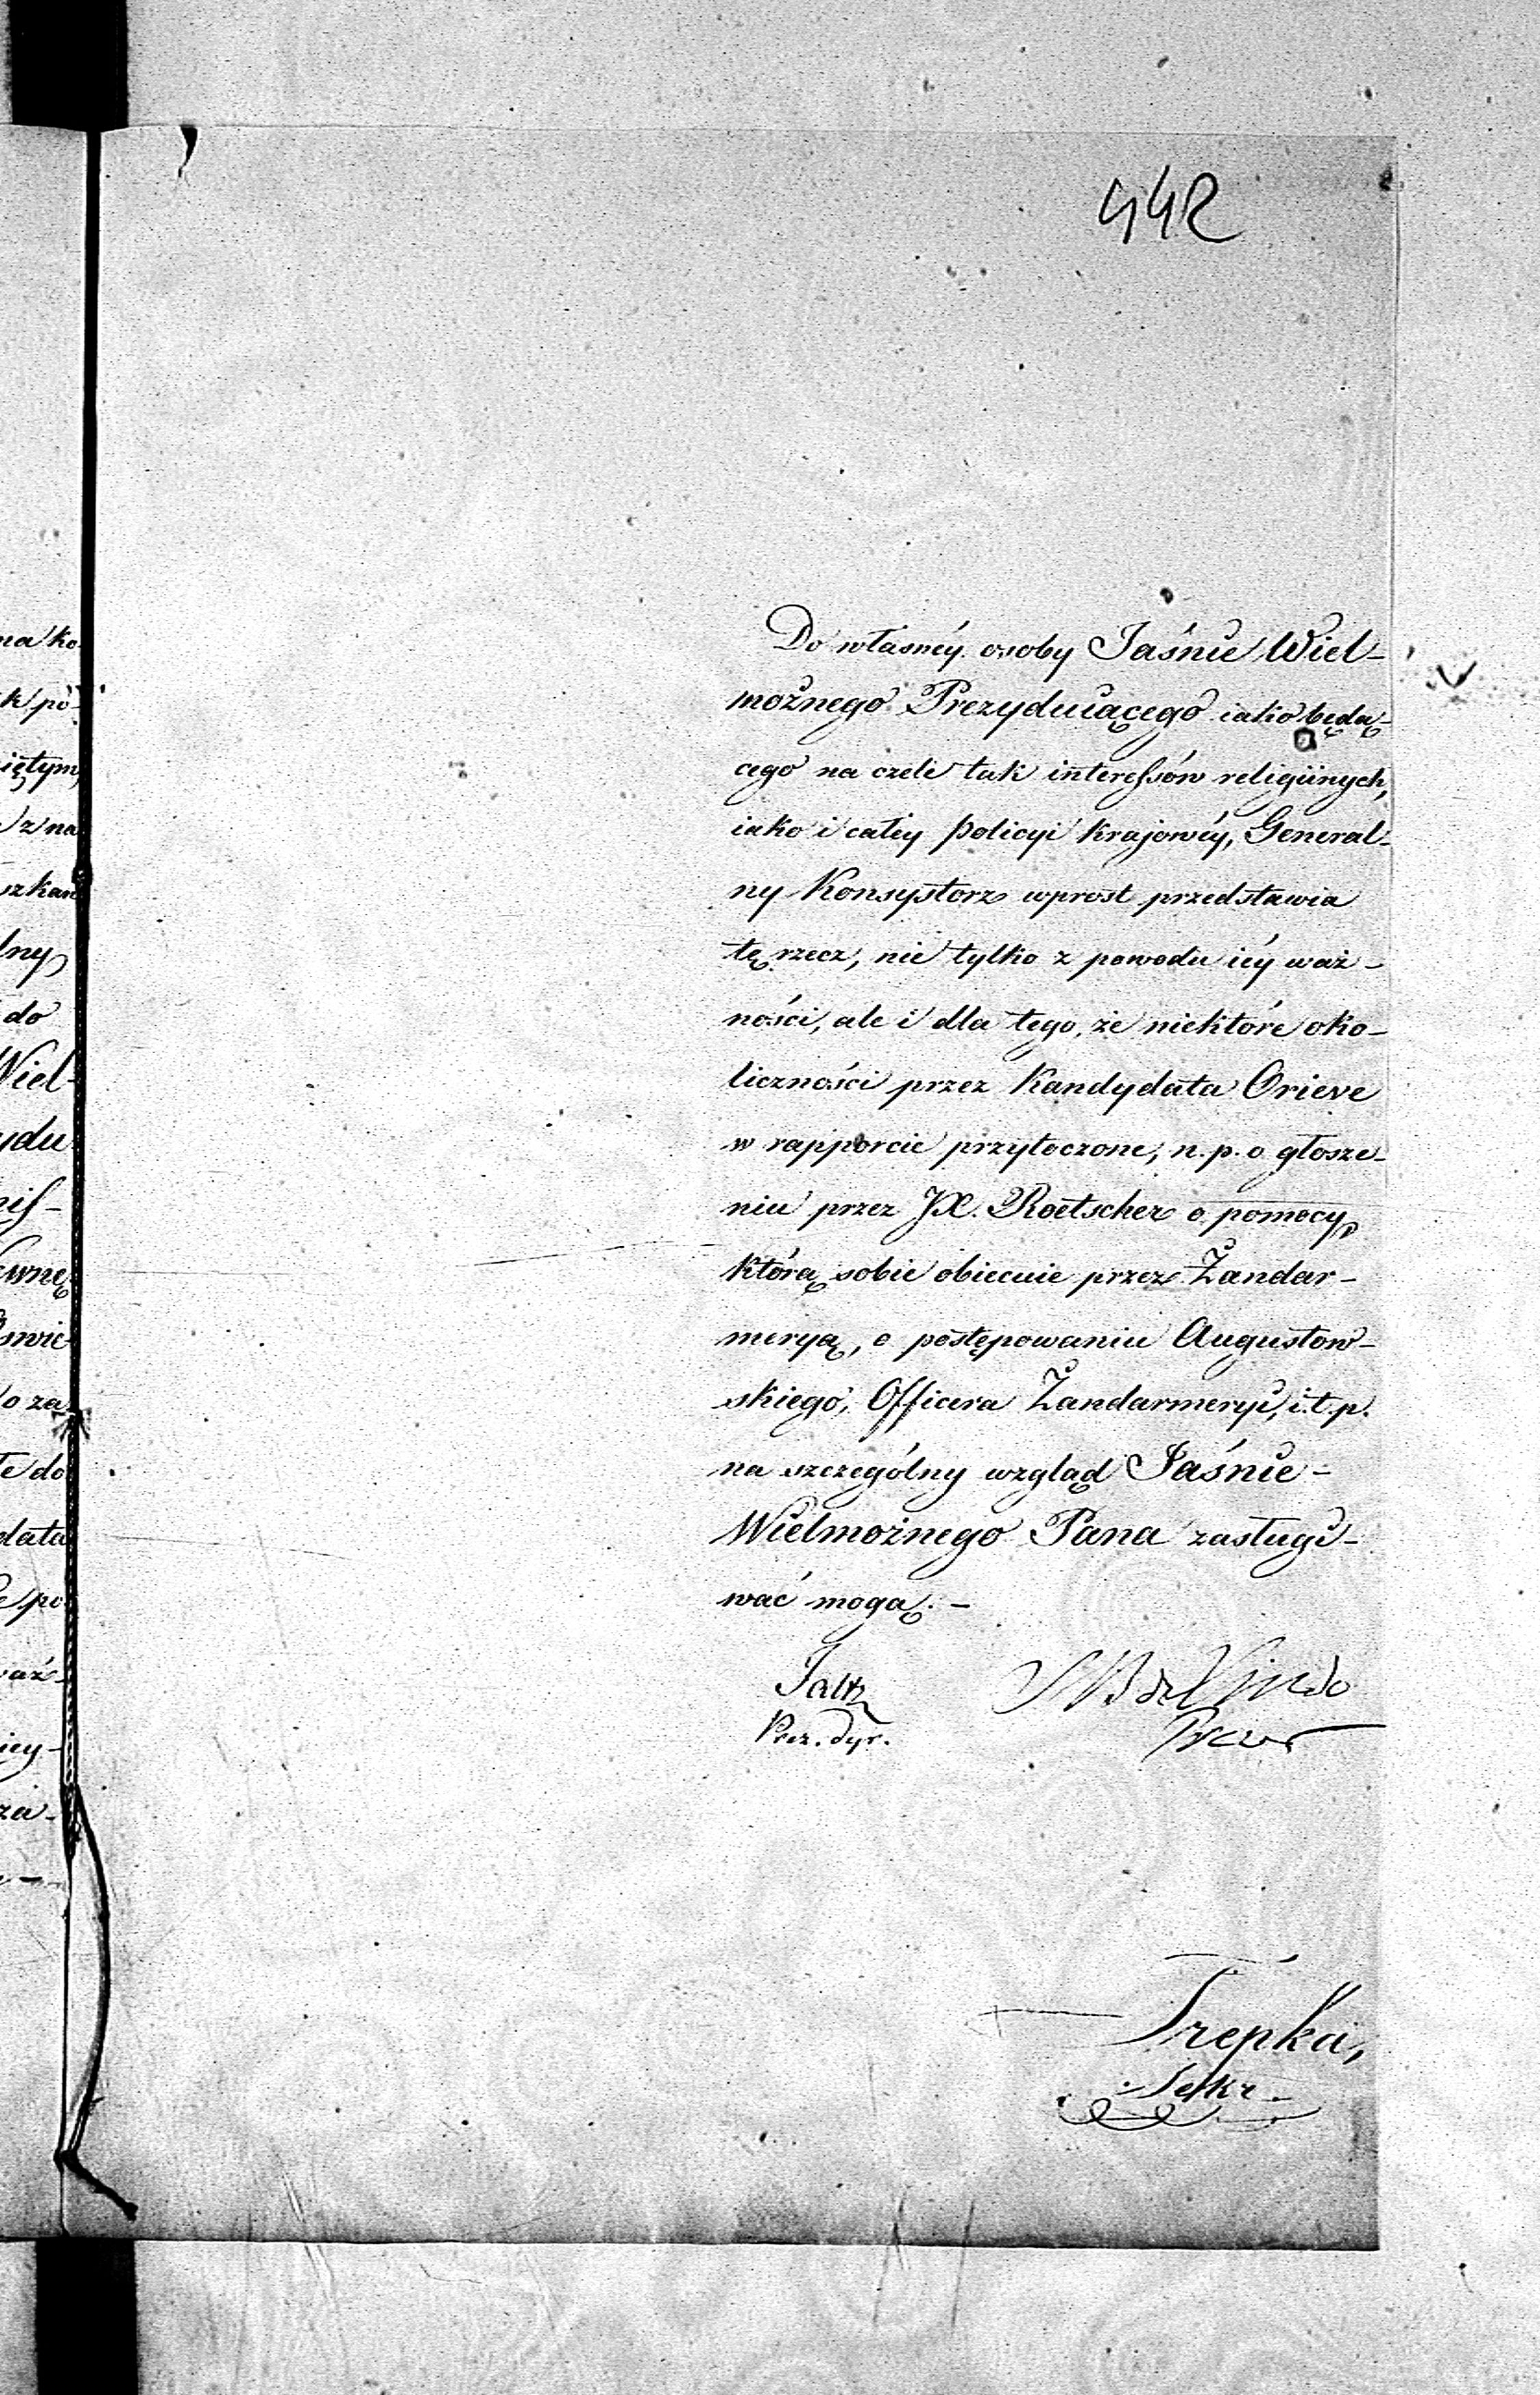 442
Do własnéy osoby Jaśnie Wiel-
możnego Prezyduiącego iako będą-
cego na czele tak interessów religiinych,
iako i całéy Policyi krajowéy, General-
ny Konsystorz wprost przedstawia
tę rzecz, nie tylko z powodu iéy waż-
ności, ale i dla tego, że niektóre oko-
liczności przez Kandydata Orieve
w rapporcie przytoczone, n. p. o głosze-
niu przez JX. Roetscher o pomocy,
którą sobie obiecuie przez Żandar-
meryą, o postępowaniu Augustow-
skiego, Officera Żandarmeryi, i. t. p.
na szczególny wzgląd Jaśnie-
Wielmożnego Pana zasługi-
wać mogą. -
Prez. Dyr.
Trepka,
Sekr-
na ko
k po
iętym
z na
szkan
lny
do
Wiel-
ydu
nis-
ewnę
o za
łe do
data
po
waż-
iey-
za-